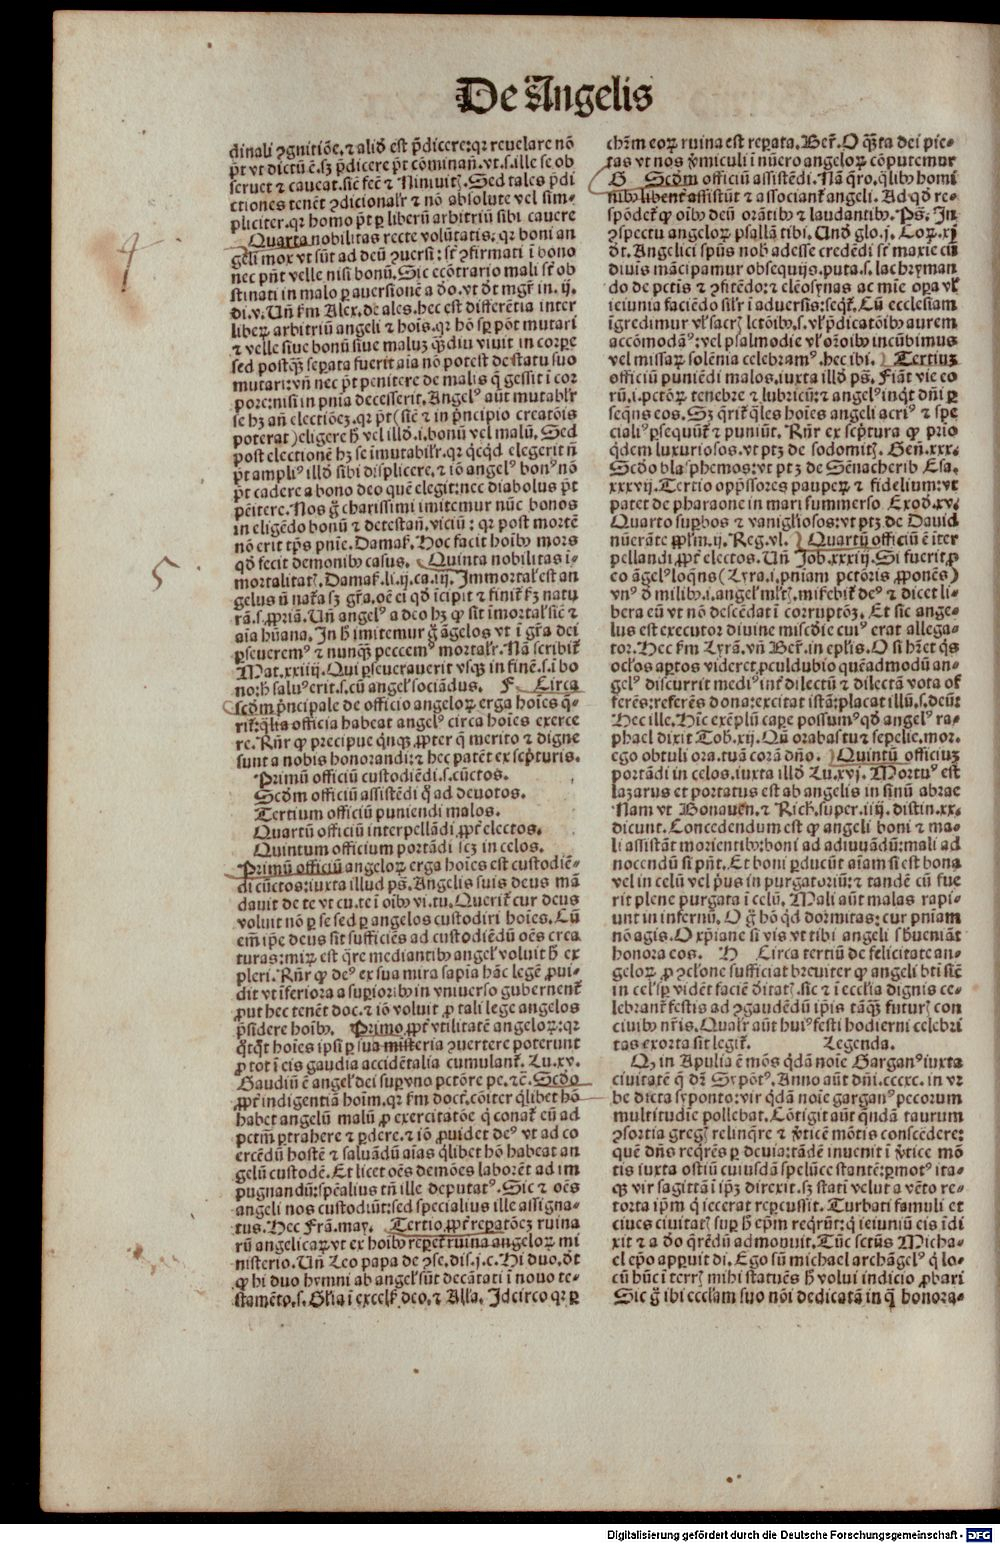 De Angelis
dinali ꝯgnitiõe. ⁊ aliđ est p̃dicere: qr reuelare nõ
p̃t vt dictũ ẽ. sꝫ p̃dicere p̃t cõminañ. vt .s. ille se ob
seruet ⁊ caueat. siẽ feẽ ⁊ Niniuitꝭ. Sed tales p̃di
ctiones tenẽt ꝯdicional'r ⁊ nõ absolute vel sim-
pliciter. qr homo p̃t ꝑ liberũ arbitriũ sibi cauere
Quarta nobilitas recte volũtatis: qr boni an
geli mox vt sũt ad deũ ꝯuersi: st̃ ꝯfirmati ĩ bono
nec pñt velle nisi bonũ. Sic eↄ̃trario mali st̃ ob
stinati in malo ꝑ auersionẽ a đo. vt đt mgr̃ in .ij.
di. v. Uñ km̃ Alex. de ales. hec est differẽtia inter
liberꝝ arbitriũ angeli ⁊ hoĩs. qr hõ sꝑ põt mutari
⁊ velle siue bonũ siue maluꝫ q̃diu viuit in corꝑe
sed postqꝫ seꝑata fuerit aĩa nõ potest de statu suo
mutari: vñ nec p̃t penitere de malis q̃ gessit ĩ cor
pore: nisi in pñia decesserit. Angelꝰ aũt mutabl'r
se hꝫ añ electiõeꝫ. qr p̃t (siẽ ⁊ in p̃ncipio creatõis
poterat) eligere ħ vel illđ .i. bonũ vel malũ. Sed
post electionẽ hꝫ se ĩmutabil'r. qr qcqđ elegerit ñ
p̃t ampliꝰ illđ sibi displicere. ⁊ iõ angelꝰ bonꝰ nõ
p̃t cadere a bono deo quẽ elegit: nec diabolus p̃t
pẽitere. Nos g̃ charissimi imitemur nũc bonos
in eligẽdo bonũ ⁊ detestañ. viciũ: qr post mortẽ
nõ erit tp̃s pnĩe. Damaß. Hoc facit hoĩbꝰ mors
qđ fecit demonibꝰ casus. Quinta nobilitas i-
mortalitatꝭ. Damaß. li. ij. ca. iij. Immortal' est an
gelus ñ nat̃a sꝫ gr̃a. oẽ ei qđ ĩcipit ⁊ finit̃ ẜꝫ natu
rã .s. ꝓpriã. Uñ angelꝰ a deo hꝫ ꝙ sit ĩmortal' siẽ ⁊
aĩa hũana. In ħ imitemur g̃ ãgelos vt ĩ gr̃a dei
ꝑseueremꝰ ⁊ nunqꝫ peccemꝰ mortal'r. Nã scribit̃
Mat. xxiiij. Qui ꝑseuerauerit vsqꝫ in finẽ .s. ĩ bo
no: ħ saluꝰ erit .s. cũ angel' sociãdus. F Circa
scđm p̃ncipale de officio angeloꝝ erga hoĩes q̃-
rit̃: q̃lia officia habeat angelꝰ circa hoĩes exerce
re. Rñr ꝙ precipue qnqꝫ ꝓpter q̃ merito ⁊ digne
sunt a nobis honorandi: ⁊ hec patẽt ex scp̃turis.
Primũ officiũ custodiẽdi .s. cũctos.
Scđm officiũ assistẽdi q̃ ad deuotos.
Tertium officiũ puniendi malos.
Quartũ officiũ interpellãdi ꝓpt̃ electos.
Quintum officium portãdi scꝫ in celos.
Primũ officiũ angeloꝝ erga hoĩes est custodiẽ-
di cũctos: iuxta illud ps̃. Angelis suis deus mã
dauit de te vt cu. te ĩ oĩbꝰ vi. tu. Querit̃ cur deus
voluit nõ ꝑ se sed ꝑ angelos custodiri hoĩes. Cũ
em̃ ip̃e deus sit sufficiẽs ad custodiẽdũ oẽs crea
turas: miꝝ est q̃re mediantibꝰ angel' voluit ħ ex
pleri. Rñr ꝙ deꝰ ex sua mira sapĩa hãc legẽ ꝓui-
dit vt ĩferiora a suꝑioribꝰ in vniuerso gubernent̃
ꝓut hec tenẽt doc. ⁊ iõ voluit ꝓ tali lege angelos
p̃sidere hoĩbꝰ. Primo ꝓpt̃ vtilitatẽ angeloꝝ: qr
qtqt hoĩes ip̃si ꝑ sua misteria ꝯuertere poterunt
ꝓ tot ĩ eis gaudia accidẽtalia cumulant̃. Lu. xv.
Gaudiũ ẽ angel' dei suꝑ vno pctõre pe. ⁊c̃. Scđo
ꝓpt̃ indigentiã hoĩm. qr km̃ doct̃. cõiter q̃libet hõ
habet angelũ malũ ꝓ exercitatõe q̃ conat̃ eũ ad
pctm̃ ꝑtrahere ⁊ ꝑdere. ⁊ iõ ꝓuidet deꝰ vt ad co
ercẽdũ hostẽ ⁊ saluãdũ aĩas q̃libet hõ habeat an
gelũ custodẽ. Et licet oẽs demões laborẽt ad im
pugnandũ: spẽalius tñ ille deputatꝰ. Sic ⁊ oẽs
angeli nos custodiũt: sed specialius ille assigna-
tus. Hec Frã. may. Tertio ꝓpt̃ reꝑatõeꝫ ruina
rũ angelicaꝝ vt ex hoĩbꝰ reꝑet̃ ruina angeloꝝ mi
nisterio. Uñ Leo papa de ꝯse. dis. j. c. Hi duo. đt
ꝙ hi duo hymni ab angel' sũt decãtati ĩ nouo te-
stamẽto .s. Gl'ia ĩ excels̃ deo. ⁊ All'a. Idcirco qr ꝑ
chr̃m eoꝝ ruina est reꝑata. Ber̃. O q̃ta dei pie-
tas vt nos v̓miculi ĩ nũero angeloꝝ cõputemur
G Scđm officiũ assistẽdi. Nã q̃ro. q̃libꝰ homi
nibꝰ libent̃ assistũt ⁊ associant̃ angeli. Ad qđ re-
spõdet̃ ꝙ oĩbꝰ deũ orãtibꝰ ⁊ laudantibꝰ. Ps̃. In
ꝯspectu angeloꝝ psallã tibi. Unđ glo. j. Coꝝ. xj
đt. Angelici spũs nob̃ adesse credẽdi st̃ maxie cũ
diuis mãcipamur obsequijs. puta .s. lachryman
do de pctĩs ⁊ ꝯfitẽdo: ⁊ eleõsynas ac mĩe oꝑa vl'
ieiunia faciẽdo sil'r ĩ aduersis: seqt̃. Cũ ecclesiam
ĩgredimur vl' sacrꝭ lctõibꝰ .s. vl' p̃dicatõibꝰ aurem
accõmodãꝰ: vel psalmodie vl' or̃oĩbꝰ incũbimus
vel missaꝝ solẽnia celebramꝰ. hec ibi. Tertiuꝫ
officiũ puniẽdi malos. iuxta illđ ps̃. Fiãt vie eo
rũ .i. pctõꝝ tenebre ⁊ lubricũ: ⁊ angelꝰ inqt dñi ꝑ
seqñs eos. Sꝫ q̃rit̃ q̃les hoĩes angeli acriꝰ ⁊ spe
cialiꝰ ꝑsequũt̃ ⁊ puniũt. Rñr ex scp̃tura ꝙ prĩo
q̃dem luxuriosos. vt ptꝫ de sodomitꝭ. Geñ. xxx.
Scđo blasphemos: vt ptꝫ de Sẽnacherib Esa.
xxxvij. Tertio opp̃ssores pauꝑeꝝ ⁊ fidelium: vt
patet de pharaone in mari summerso Exođ. xv.
Quarto suꝑbos ⁊ vanigl'iosos: vt ptꝫ de Dauid
nũerãte ꝓpl'm. ij. Reg. vl. Quartũ officiũ ẽ iter
pellandi ꝓpt̃ electos. Uñ Job. xxxiij. Si fuerit ꝓ
eo ãgelꝰ loqñs (Lyra .i. pniam pctõris ꝓponẽs)
vnꝰ đ milibꝰ .i. angel' ml'tꝭ. mißebit̃ deꝰ ⁊ dicet li-
bera eũ vt nõ descẽdat ĩ corruptõeꝫ. Et sic ange-
lus est executor diuine miscđie cuiꝰ erat allega-
tor. Hec km̃ Lyrã. vñ Ber̃. in epl'is. O si hr̃et q̃s
ocl'os aꝑtos videret ꝓculdubio quẽadmodũ an-
gelꝰ discurrit mediꝰ int̃ dilectũ ⁊ dilectã vota of
ferẽs: referẽs dona: excitat istã: placat illũ .s. deũ:
Hec ille. Hũc exẽplũ caꝑe possumꝰ qđ angelꝰ ra-
phael dixit Tob. xij. Qñ orabas tu ⁊ sepelie. mor.
ego obtuli ora. tuã corã dño. Quintũ officiuꝫ
portãdi in celos. iuxta illđ Lu. xvj. Mortuꝰ est
lazarus et portatus est ab angelis in sinũ abrae
Nam vt Bonauen. ⁊ Rich. super .iiij. distin. xx.
dicunt. Concedendum est ꝙ angeli boni ⁊ ma-
li assistãt morientibꝰ: boni ad adiuuãdũ: mali ad
nocendũ si pñt. Et boni ꝑducũt aĩam si est bona
vel in celũ vel p̃us in purgatoriũ: ⁊ tandẽ cũ fue
rit plene purgata ĩ celũ. Mali aũt malas rapi-
unt in infernũ. O g̃ hõ qđ dormitas: cur pniam
nõ agis. O xp̃iane si vis vt tibi angeli sbueniãt
honora eos. H Circa tertiũ de felicitate an-
geloꝝ ꝓ ꝯcl'one sufficiat breuiter ꝙ angeli btĩ siẽ
in cel' sꝑ vidẽt faciẽ đitatꝭ. sic ⁊ ĩ ecclĩa dignis ce-
lebrant̃ festis ad ꝯgaudẽdũ ip̃is tãqꝫ futurꝭ con
ciuibꝰ nr̃is. Qual'r aũt huiꝰ festi hodierni celebri
tas exorta sit legit̃. Legenda.
Qꝫ in Apulia ẽ mõs q̃dã noĩe Garganꝰ iuxta
ciuitatẽ q̃ đr Sypõtꝰ. Anno aũt dñi. cccxc. in vr
be dicta syponto: vir q̃dã noĩe garganꝰ pecorum
multitudĩe pollebat. Cõtigit aũt qñdã taurum
ꝯsortia gregꝭ relinq̃re ⁊ v̓ticẽ mõtis conscẽdere:
quẽ dñs req̃rẽs ꝑ deuia: tãdẽ inuenit ĩ v̓tice mõ
tis iuxta ostiũ cuiusdã spelũce stantẽ: ꝑmotꝰ ita-
qꝫ vir sagittã ĩ ip̃ꝫ direxit. sꝫ statĩ velut a vẽto re-
torta ip̃m q̃ iecerat reꝑcussit. Turbati famuli et
ciues ciuitatꝭ suꝑ ħ ep̃m req̃rũt: q̃ ieiuniũ eis ĩdi
xit ⁊ a đo q̃rẽdũ admonuit. Tũc sctũs Micha-
el ep̃o apꝑuit di. Ego sũ michael archãgelꝰ q̃ lo-
cũ hũc ĩ terrꝭ mihi statuẽs ħ volui indicio ꝓbari
Sic g̃ ibi eccl'am suo nõi dedicatã in q̃ honora-
4
5
Digitalisierung gefördert durch die Deutsche Forschungsgemeinschaft - DFG